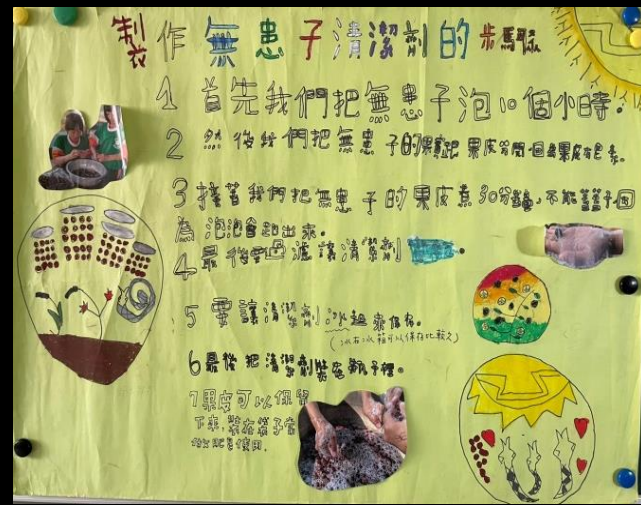 製作無患子清潔劑的步驟
1 首先我們把無患子泡10個小時。
2 然後我們把無患子的果實把果皮分開因為果皮有皂素。
3 接著我們把無患子的果皮煮30分鐘,不能蓋蓋子因
為泡泡會跑出來。
4 最後要過濾讓清潔劑
5 要讓清潔劑冰起來保存。
(冰在冰箱可以保存比較久)
6 最後把清潔劑裝在瓶子裡。
7 果皮可以保留
下來,裝在袋子當
做肥皂使用.